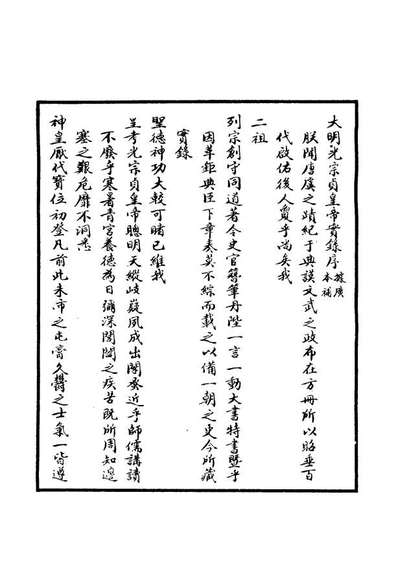 大明光宗貞皇帝實錄序 據廣本補
朕聞唐虞之蹟紀于典謨文武之政布在方冊所以昭垂百
代啟佑後人夐乎尚矣我
二祖
列宗創守同道著令史官簪筆丹陛一言一動大書特書暨乎
因革鉅典臣下章奏莫不綜而載之以備一朝之史今所藏
實錄
聖德神功大較可睹已維我
皇考光宗貞皇帝聰明天縱岐嶷夙成出閣爰近乎師儒講讀
不廢乎寒暑青宮養德為日彌深閭閻之疾苦既所周知邊
塞之艱危靡不洞悉
神皇厭代寶位初登凡前此未沛之屯膏久鬱之士氣一皆遵